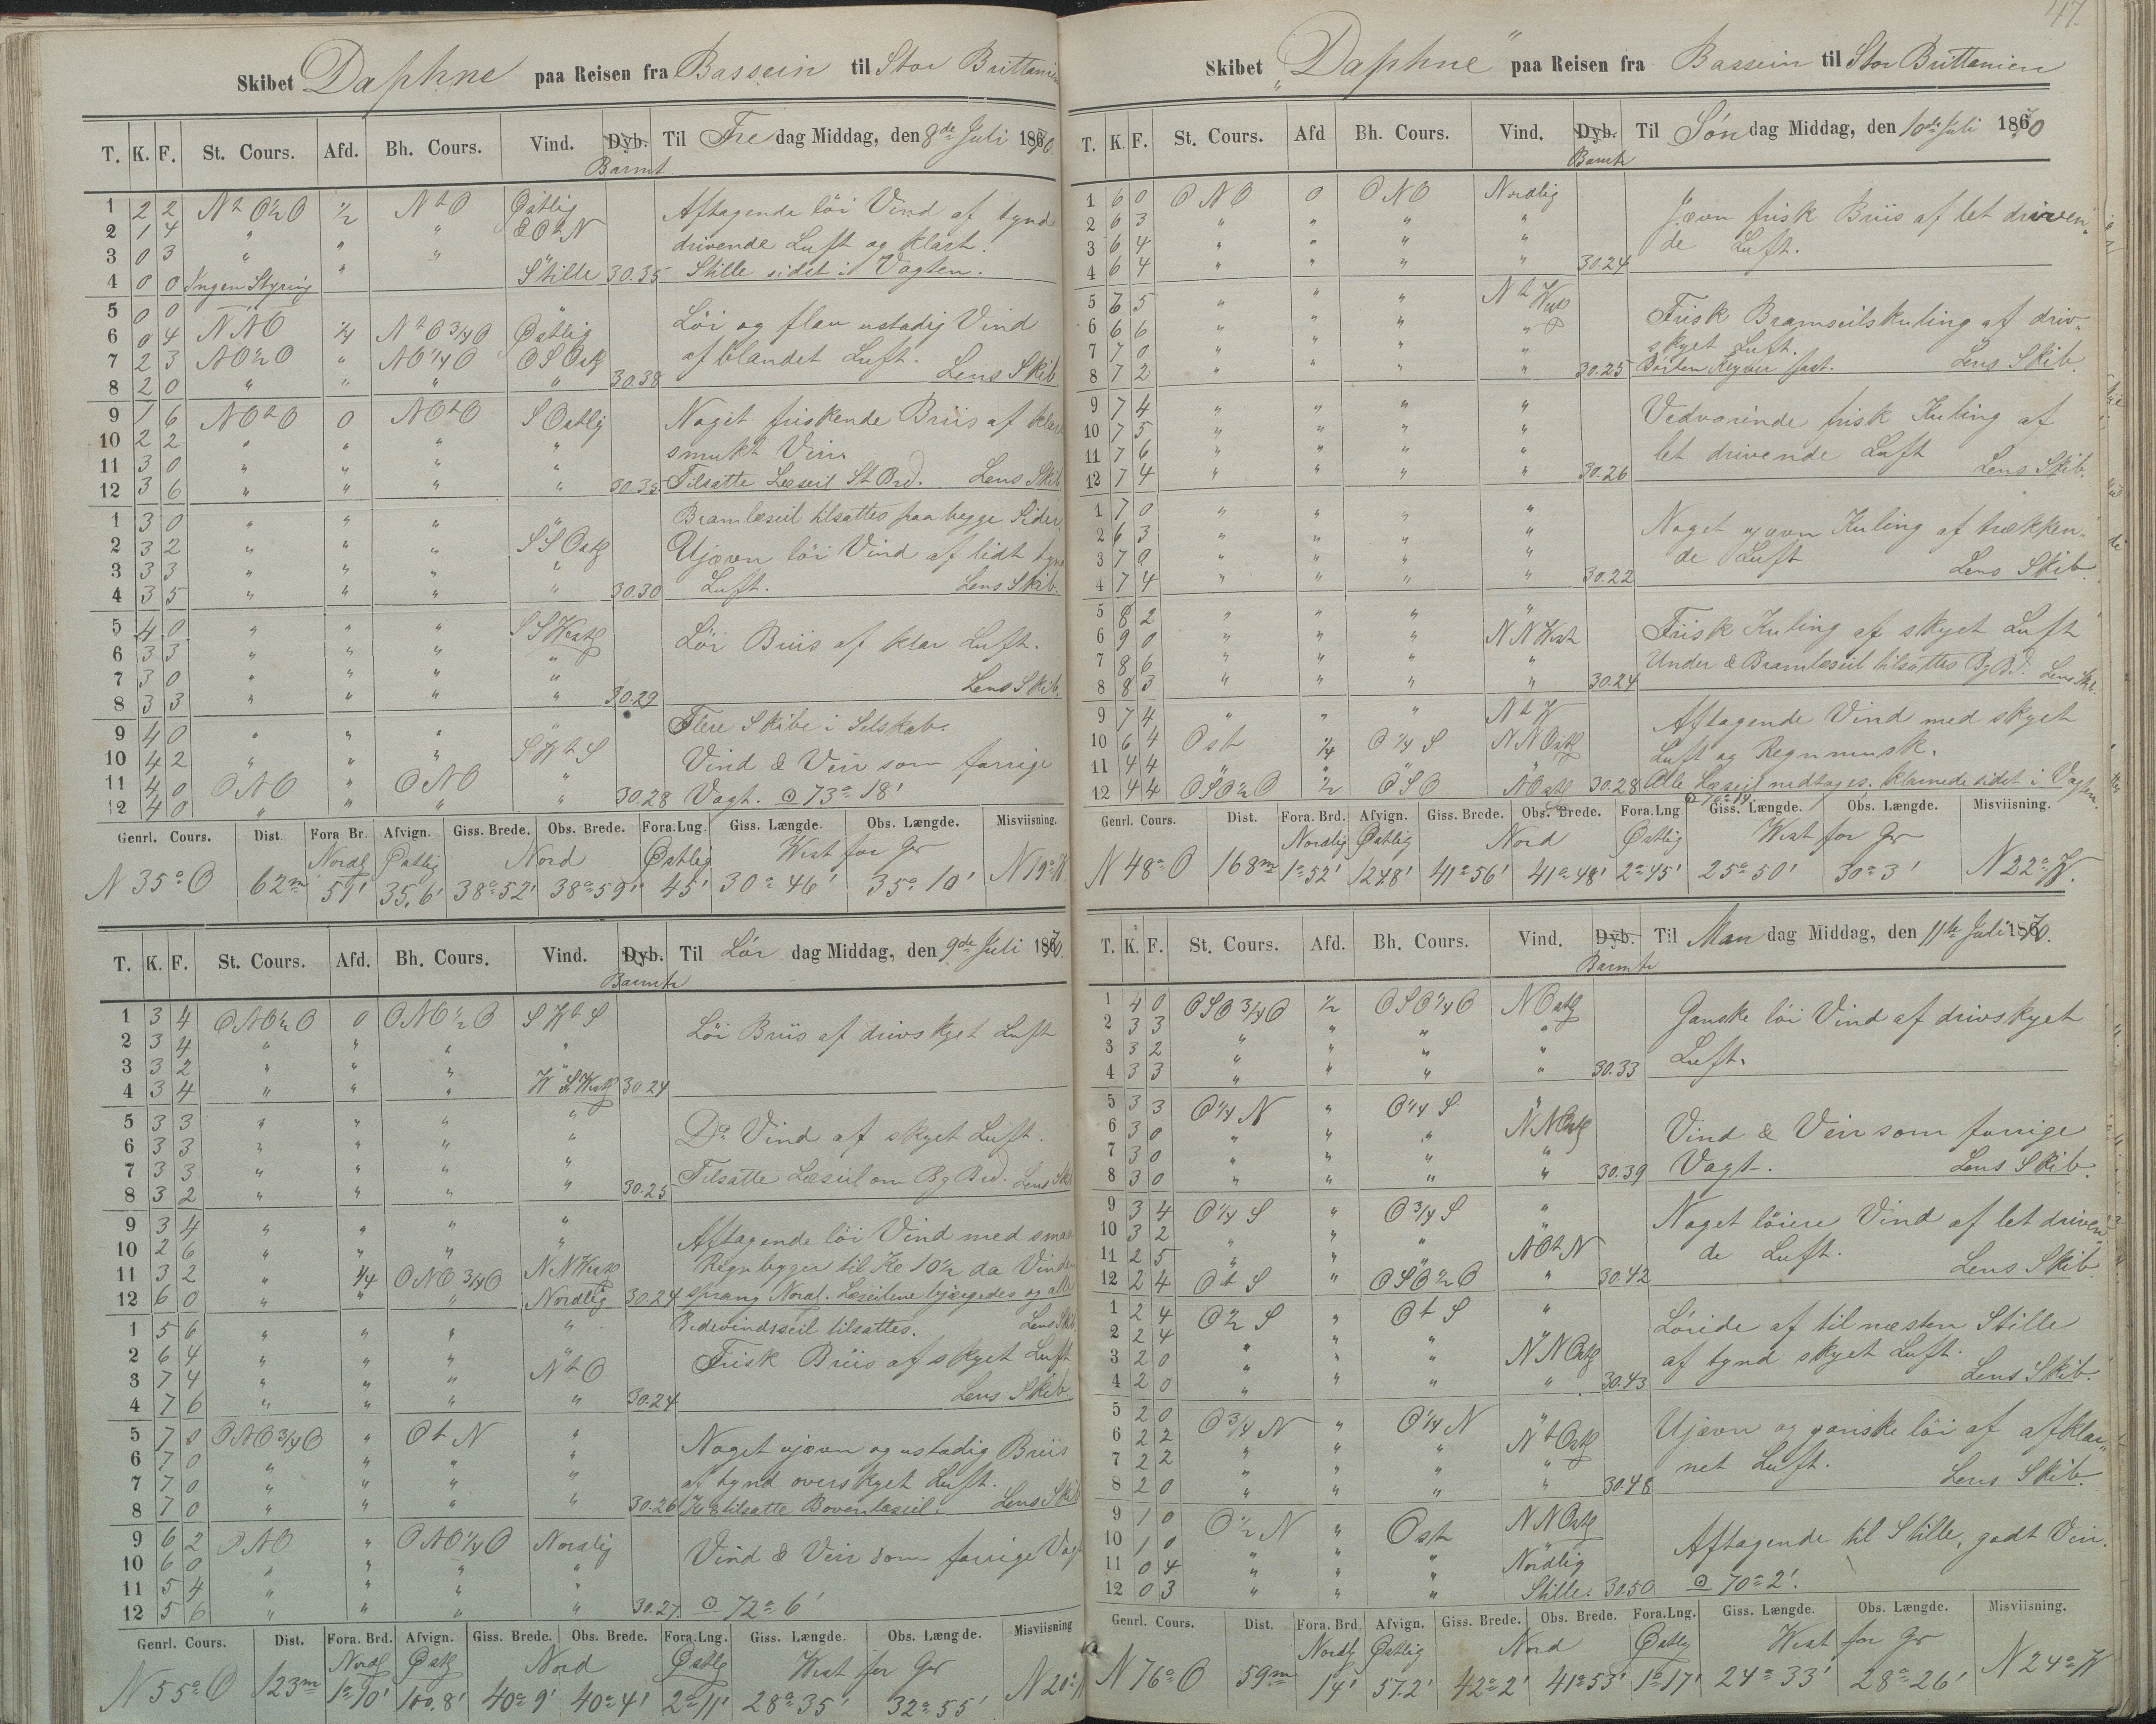 Skibet Daphne paa Reisen fra Bassein til Stor Brittanien
T. K. F. St. Cours. Afd. Bh. Cours. Vind. Dyb. Til Fredag Middag, den 8de Juli 1870.
Barmt.
1 2 2 Nt O½O ½ NtO Østlig Aftagende löi Vind af tynd
2 1 4 " " " OtN drivende Luft og klart.
3 0 3 " " " "
4 0 0 Ingen Styring " Stille 30.35 Stille sidst i Vagten.
5 0 0 "
6 0 4 NNO ¼ NtO¾O Østlig Löi og flau ustadig Vind
7 2 3 NO½O " NO¼O OSOstlg af blandet Luft. Lens Skib
8 2 0 " " " " 30.38
9 1 6 NOtO 0 NOtO SOstlig Noget friskende Briis af klart
10 2 2 " " " " smukt Veir.
11 3 0 " " " "
12 3 6 " " " " 30.35 Tilsatte Læseil St Brd. Lens Skib
1 3 0 " " " " Bramlæseil tilsattes paa begge Sider.
2 3 2 " " " SSOstlg Ujævn löi Vind af lidt
3 3 3 " " " "
4 3 5 " " " " 30.30 Luft. Lens Skib.
5 4 0 " " " SSWestlg Löi Briis af klar Luft.
6 3 3 " " " "
7 3 0 " " " "
8 3 3 " " " " 30.29 Lens Skib.
9 4 0 " " " " Flere Skibe i Selskab.
10 4 2 " " " SWtS Vind & Veir som forrige
11 4 0 ONO " ONO "
12 4 0 " " " 30.28 Vagt. ⊙ 73° 18'
Genrl. Cours. Dist. Fora Br. Afvign. Giss. Brede. Obs. Brede. Fora.Lng. Giss. Længde. Obs. Længde. Misviisning.
Nordl Østlig Nord Østlig West for Gr
N 35° O 62m 51' 35,6' 38° 52' 38° 59' 45' 30° 46' 35° 10' N 19° W.
T. K. F. St. Cours. Afd. Bh. Cours. Vind. Dyb. Til Lör dag Middag, den 9de Juli 1870.
Barmtr
1 3 4 ONO½O 0 ONO½O SWtS Löi Briis af drivskyet Luft
2 3 4 " " " "
3 3 2 " " " "
4 3 4 " " " WSWestlg 30.24
5 3 3 " " " " Do Vind af skyet Luft.
6 3 3 " " " "
7 3 3 " " " "
8 3 2 " " " " 30.25 Tilsatte Læseil om Bg Brd. Lens Skb
9 3 4 " " " " Aftagende löi Vind med smaa
10 2 6 " " " " Regnbyger til Kl 10½ da Vinden
11 3 2 " ¼ ONO¾O NNWestl
12 6 0 " " " Nordlig 30.24 sprang Nordl. Læseilene bjærgedes og alle
1 5 6 " " " " Bidevindsseil tilsattes. Lens Skib
2 6 4 " " " " Frisk Briis af skyet Luft
3 7 4 " " " NtO
4 7 6 " " " " 30.24 Lens Skib.
5 7 0 ONO¾O " OtN " Noget ujævn og ustadig Briis
6 7 0 " " " "
7 7 0 " " " " af tynd overskyet Luft.
8 7 0 " " " " 30.26 Kl 8 tilsatte Bovenlæseil. Lens Skib
9 6 2 ONO " ONO¼O Nordlig Vind & Veir som forrige Vagt
10 6 0 " " " "
11 5 4 " " " "
12 5 6 " " " " 30.27. ⊙ 72° 6'
Genrl. Cours. Dist. Fora. Brd. Afvign. Giss. Brede. Obs. Brede. Fora.Lng. Giss. Længde. Obs. Længde. Misviisning
Nordl Østlg Nord Østlg West for Gr
N 55° O 123m 1° 10' 100,8' 40° 9' 40° 4' 2° 11' 28° 35' 32° 55' N 20° W
47.
Skibet "Daphne" paa Reisen fra Bassein til Stor Brittanien
T. K. F. St. Cours. Afd Bh. Cours. Vind. Dyb. Til Søndag Middag, den 10de Juli 1870
Barmtr
1 6 0 ONO 0 ONO Nordlig Jævn frisk Briis af let driven-
2 6 3 " " " " de Luft.
3 6 4 " " " "
4 6 4 " " " " 30.24
5 6 5 " " " NtWest Frisk Bramseilskuling af driv-
6 6 6 " " " " skyet Luft.
7 7 0 " " " "
8 7 2 " " " " 30.25 fast. Lens Skib.
9 7 4 " " " " Vedvarende frisk Kuling af
10 7 5 " " " " let drivende Luft
11 7 6 " " " "
12 7 4 " " " " 30.26 Lens Skib.
1 7 0 " " " " Noget ujævn Kuling af trækken-
2 6 3 " " " " de Luft
3 7 0 " " " "
4 7 4 " " " " 30.22 Lens Skib.
5 8 2 " " " " Frisk Kuling af skyet Luft
6 9 0 " " " NNWest
7 8 6 " " " " Under & Bramlæseil tilsattes Bg Bd. Lens Skb.
8 8 3 " " " " 30.24
9 7 4 " " " NtW Aftagende Vind med skyet
10 6 4 Ost ¼ O¼S NNOstlg Luft og Regnmusk.
11 4 4 " " " "
12 4 4 OSO½O ½ OSO NOstlg 30.28 Alle Læseil nedtages. klarnede sidst i Vagten.
⊙ 70° 14'
Genrl. Cours. Dist. Fora. Brd. Afvign. Giss. Brede. Obs. Brede. Fora.Lng Giss. Længde. Obs. Længde. Misviisning.
Nordlig Østlig Nord Østlig West for Gr
N 48° O 168m 1° 52' 124,8' 41° 56' 41° 48' 2° 45' 25° 50' 30° 3' N 22° W.
T. K. F. St. Cours. Afd. Bh. Cours. Vind. Dyb. Til Mandag Middag, den 11te Juli 1870.
Barmtr
1 4 0 OSO¾O ½ OSO¼O NOstlg Ganske löi Vind af drivskyet
2 3 3 " " " "
3 3 2 " " " " Luft.
4 3 3 " " " " 30.33
5 3 3 O¼N " O¼S "
6 3 0 " " " NNOstlg Vind & Veir som forrige
7 3 0 " " " "
8 3 0 " " " " 30.39 Vagt. Lens Skib.
9 3 4 O¼S " O¾S " Noget löiere Vind af let driven-
10 3 2 " " " " de Luft.
11 2 5 " " " NOtN
12 2 4 OtS " OSO½O " 30.42 Lens Skib.
1 2 4 O½S " OtS " Løiede af til næsten Stille
2 2 4 " " " " af tynd skyet Luft.
3 2 0 " " " NNOstlg
4 2 0 " " " " 30.43 Lens Skib.
5 2 0 O¾N " O¼N " Ujævn og ganske löi af afklar-
6 2 2 " " " NtOstlg
7 2 2 " " " " net Luft.
8 2 0 " " " " 30.48 Lens Skib.
9 1 0 O½N " Ost NNOstlg Aftagende til Stille, godt Veir.
10 1 0 " " " "
11 0 4 " " " Nordlig
12 0 3 " " " Stille. 30.50 ⊙ 70° 2'.
Genrl. Cours. Dist. Fora. Brd. Afvign. Giss. Brede. Obs. Brede. Fora.Lng. Giss. Længde. Obs. Længde. Misviisning.
Nordlg Østlig Nord Østlg West for Gr
N 76° O 59m 14' 57.2' 42° 2' 41° 53' 1° 17' 24° 33' 28° 26' N 24° W